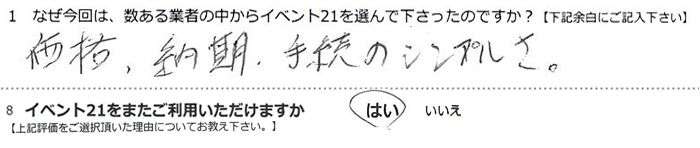 1 なぜ今回は、数ある業者の中からイベント21を選んで下さったのですか？【下記余白にご記入下さい】
価格，納期．手続のシンプルさ。
8 イベント21をまたご利用いただけますか はい いいえ
【上記評価をご選択頂いた理由についてお教え下さい。】